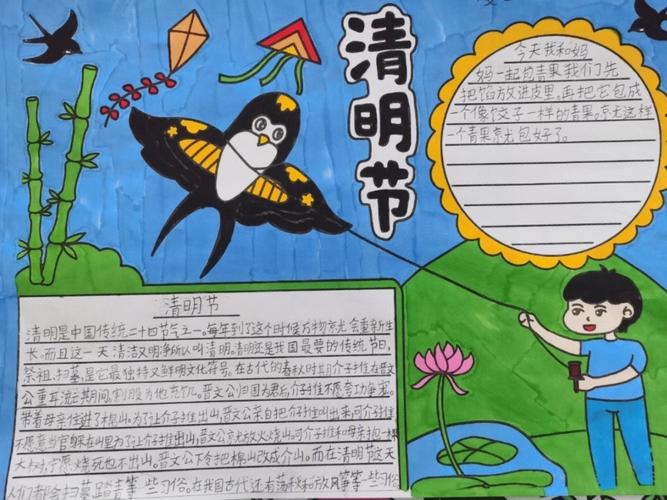 清明节
今天我和妈
妈一起包青果我们先
把馅放进皮里,再把它包成
一个像饺子一样的青果。就这样
一个青果就包好了。
清明节
清明是中国传统二十四节气之一。每年到了这个时候万物就会重新生
长。而且这一天清洁又明净所以叫清明。清明还是我国最要的传统节日,
祭祖、扫墓,是它最独特又鲜明文化符号。在古代的春秋时期介子推在晋文
公重耳流亡期间,割股为他充饥。晋文公归国为君后,介子推不愿夸功争宠。
带着母亲住进了棉山。为了让介子推出山,晋文公亲自把介子推叫出来,可介子推
不愿意当官躲在山里为了让介子推出山。晋文公就放火烧山。可介子推和母亲抱一棵
大树,宁愿烧死也不出山。晋文公下令把棉山改成介山。而在清明节这天
人们都会扫墓,踏青等一些习俗。在我国古代还有荡秋千和放风筝等一些习俗